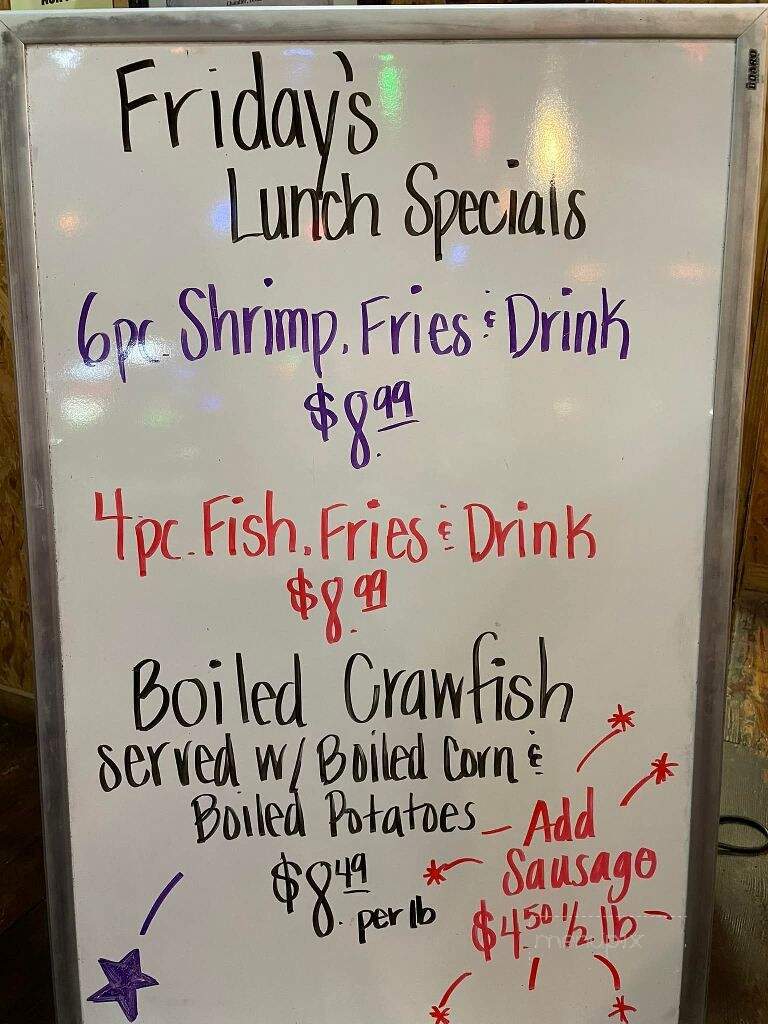 Friday's
Lunch Specials
6pc. Shrimp, Fries & Drink
$8.99
4pc. Fish, Fries & Drink
$8.99
Boiled Crawfish
served w/ Boiled Corn &
Boiled Potatoes - Add
Sausage
$8.49 per lb
$4.50 1/2 lb
menupix